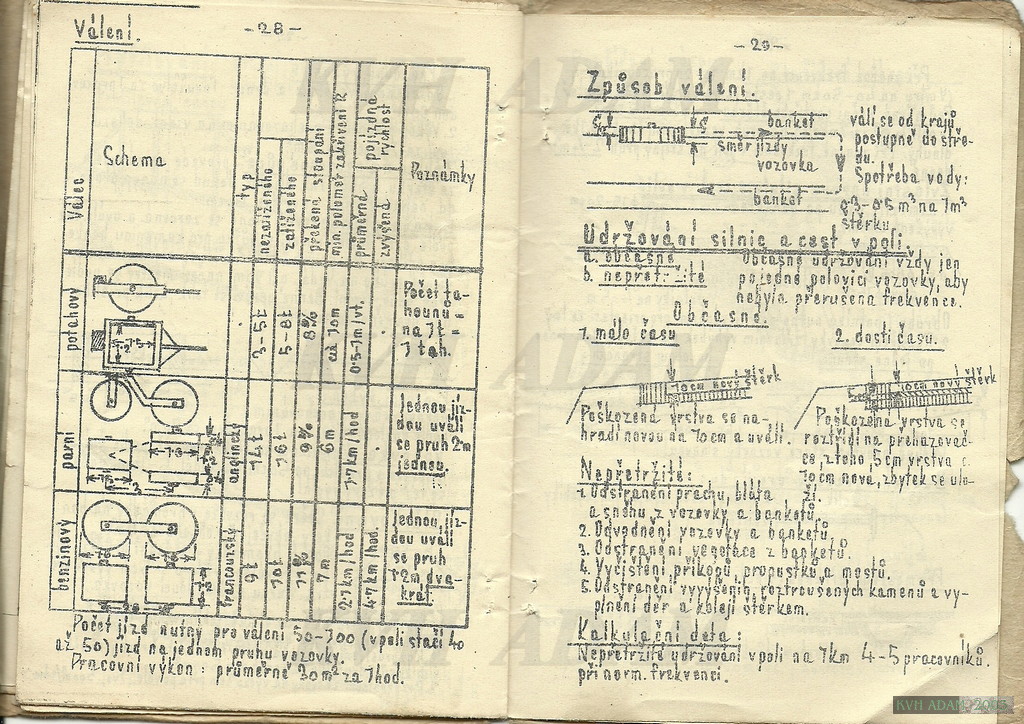 - 28 -
Válení.
Válec
Schema
typ
nezatíženého
zatíženého
překoná stoupání
min. poloměr zakřivení R
pojízdná rychlost
průměrná
zvýšená
Poznámky
potahový
3-5 t
5-8 t
8%
až 10m
0.5-1m/vt.
Počet ta-
hounů=
na 1t =
1 tah.
parní
anglický
14 t
16 t
9%
6m
Jednou jíz-
dou uválí
se pruh 2m
jednou.
benzinový
francouzský
9 t
10 t
11%
7m
2-7 km/hod
4-7 km/hod.
Jednou jíz-
dou uválí
se pruh
1·2m dva-
krát.
Počet jízd nutný pro válení 50-100 (v poli stačí 40
až 50) jízd na jednom pruhu vozovky.
Pracovní výkon: průměrně 30m² za 1hod.
- 29 -
Způsob válení.
banket
směr jízdy
vozovka
banket
válí se od krajů
postupně do stře-
du.
Spotřeba vody:
0·3-0·5 m³ na 1m³
štěrku.
Udržování silnic a cest v poli.
a. občasné
b. nepřetržité
Občasné udržování vždy jen
po jedné polovici vozovky, aby
nebyla přerušena frekvence.
Občasné.
1. málo času
2. dosti času.
10cm nový štěrk
10cm nový štěrk
Poškozená vrstva se na-
hradí novou na 10cm a uválí.
Poškozená vrstva se
roztřídí na přehazovač-
ce, z toho 5cm vrstva a
10cm nová, zbytek se ulo-
ží.
Nepřetržité:
1. Odstranění prachu, bláta
a sněhu z vozovky a banketů.
2. Odvodnění vozovky a banketů.
3. Odstranění vegetace z banketů.
4. Vyčistění příkopů, propustků a mostů.
5. Odstranění vyvýšenin, roztroušených kamenů a vy-
plnění děr a kolejí štěrkem.
Kalkulační data:
Nepřetržité udržování v poli na 1km 4-5 pracovníků.
při norm. frekvenci.
KVH ADAM
KVH ADAM
KVH ADAM
KVH ADAM 2005